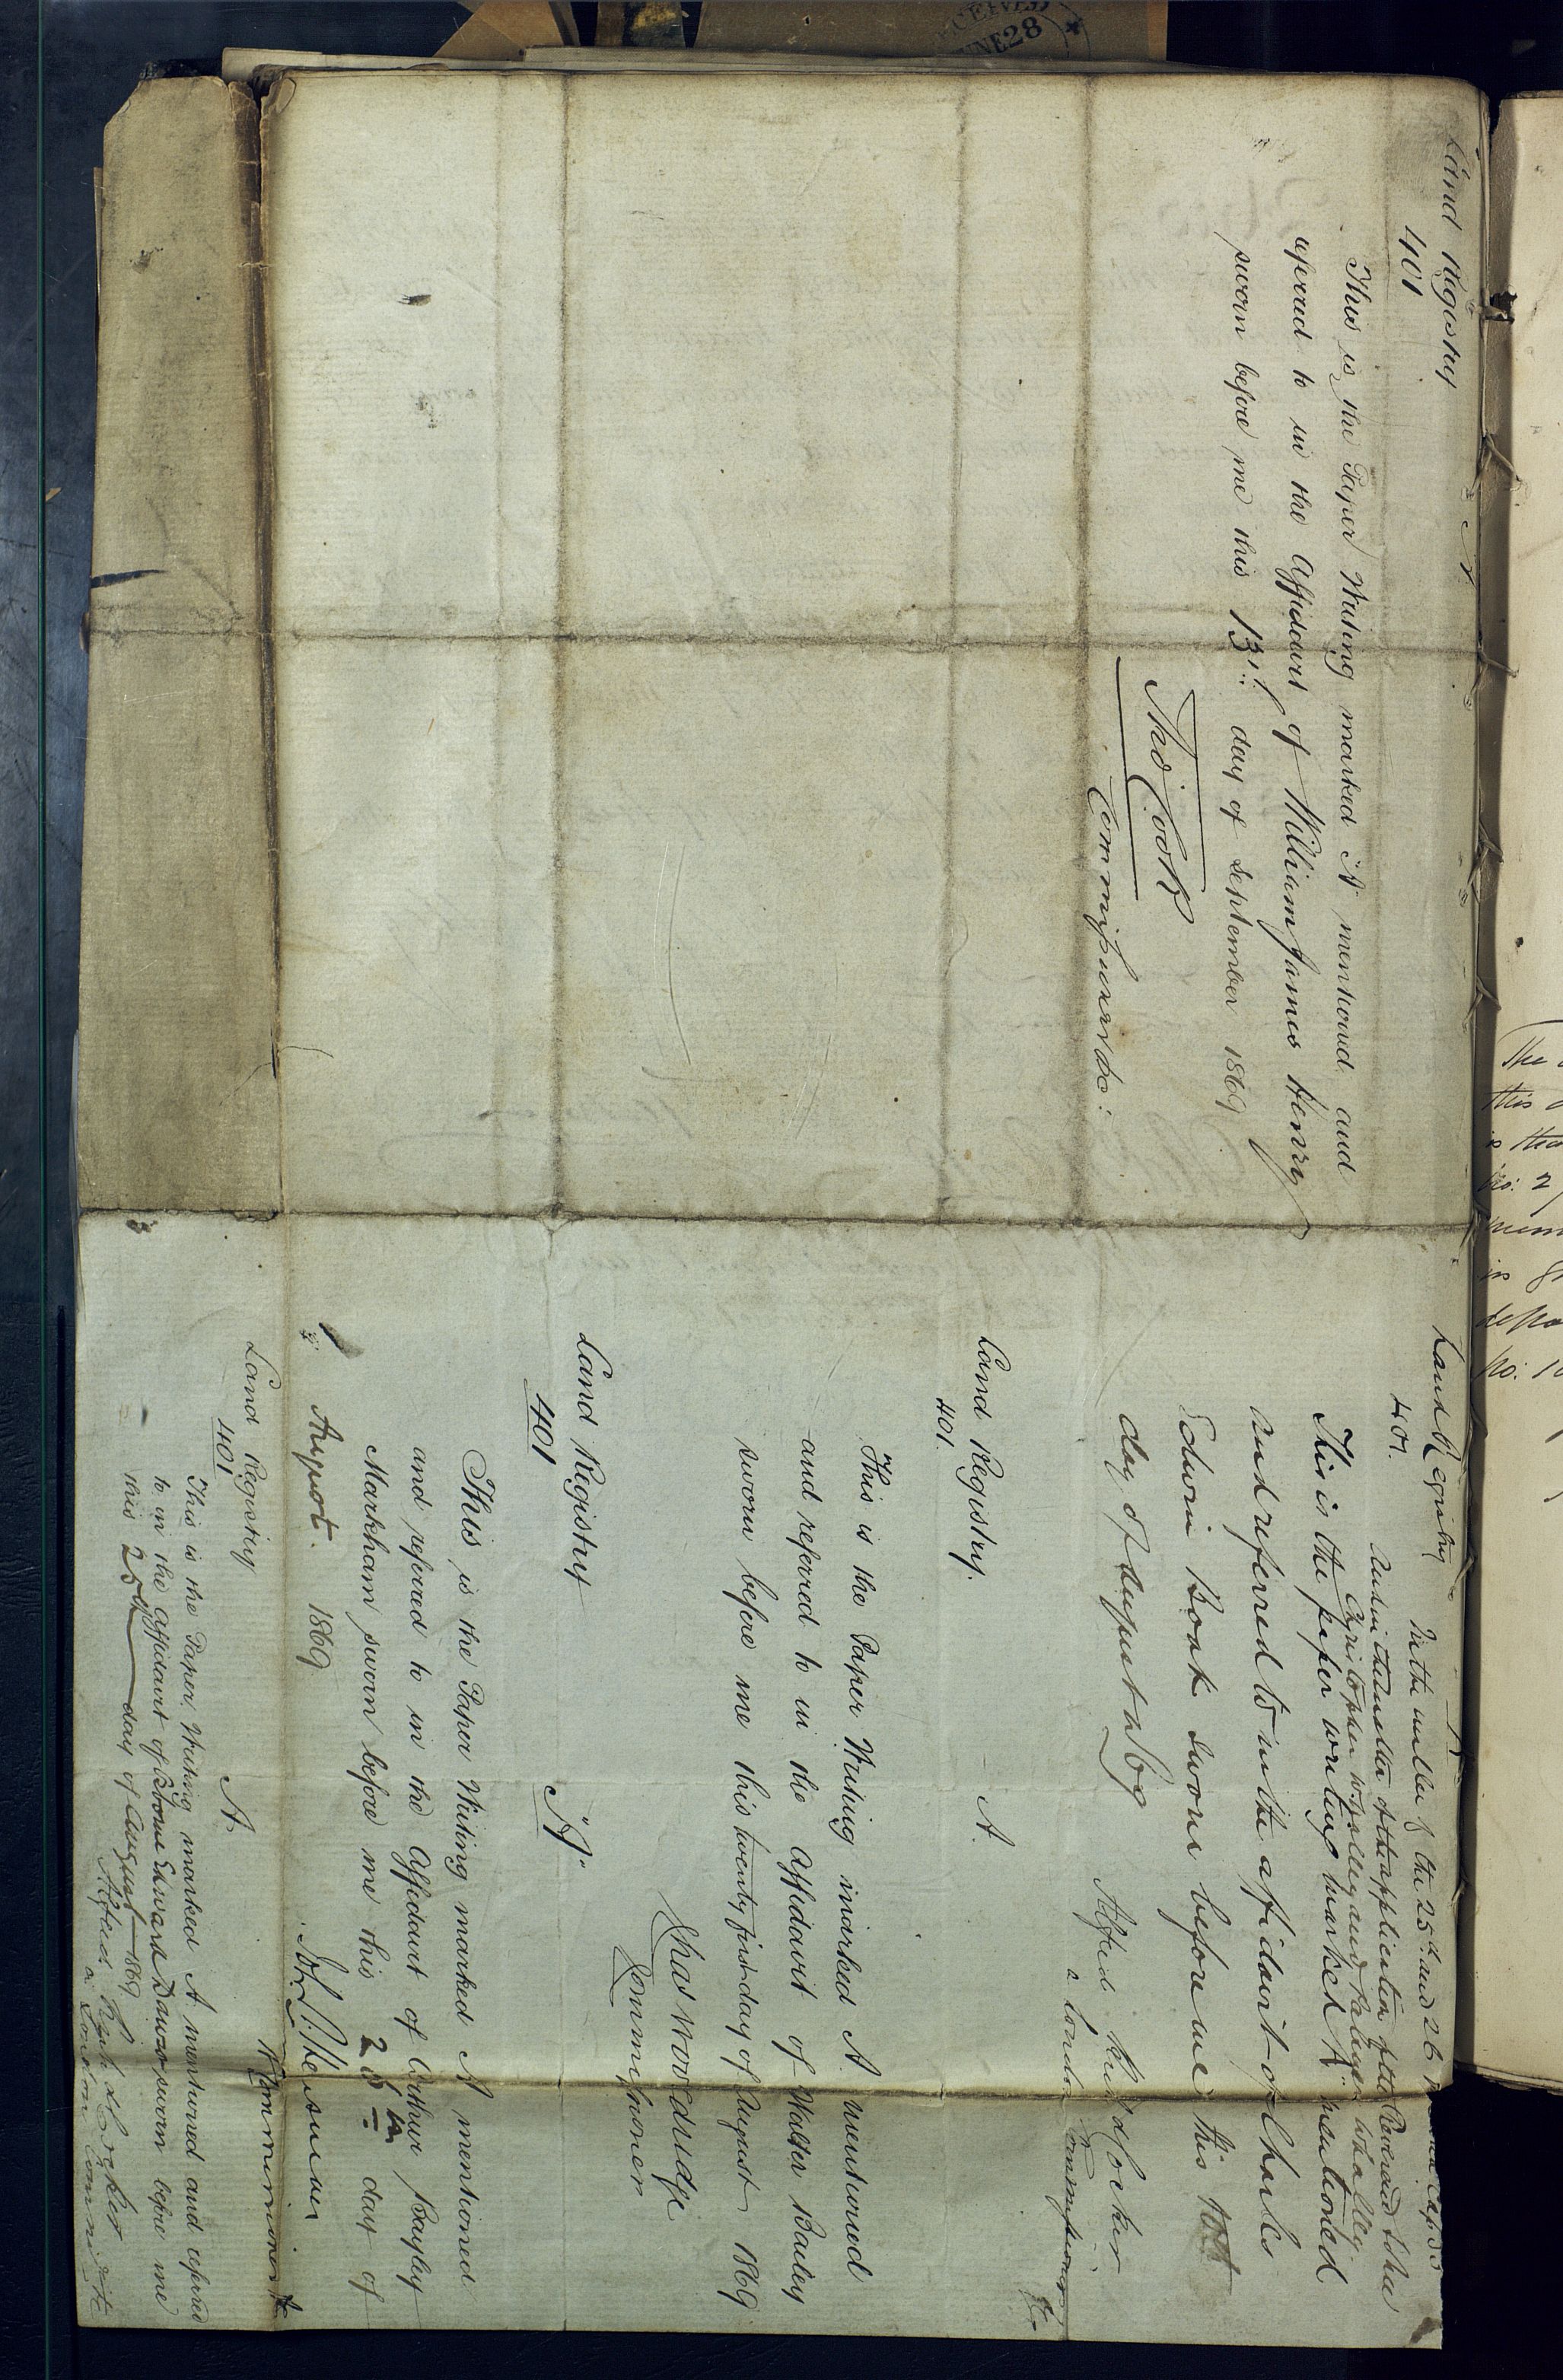 Land Registry
401
A
This is the Paper Writing marked A mentioned and
referred to in the Affidavit of William James Henry
sworn before me this 13th day of September 1869
Thos Cook
Commissioner &c:
Land Registry
401.
A
In the matter of the 25th and 26
And in the matter of the application of the Reverend John
Christopher Whalley and Whalley
This is the paper writing marked A mentioned
and referred to in the affidavit of Charles
Edwin Book sworn before me this
day of August 1869
Alfred
a London Commissioner &c
Land Registry.
401.
A.
This is the Paper Writing marked A mentioned
and referred to in the Affidavit of Walter Bailey
sworn before me this twenty first day of August 1869
Chas Woodridge
Commissioner
Land Registry
401
"A"
This is the Paper Writing marked A mentioned
and referred to in the Affidavit of Arthur Bayley
Markham sworn before me this 25th day of
August 1869
A Commissioner &c
Land Registry
401
A
This is the Paper Writing marked A mentioned and referred
to in the Affidavit of Edward Dawes sworn before me
this 25th day of August 1869
Alfred
a London Commissioner &c
JUNE 28
The
this
is
No: 2
in
No: 10